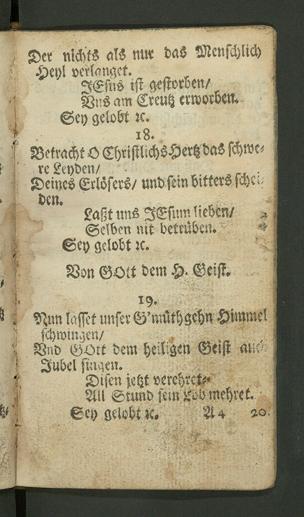 Der nichts als nur das Menschlich
Heyl verlanget.
JEsus ist gestorben/
Vns am Creutz erworben.
Sey gelobt ꝛc.
18.
Betracht O Christlichs Hertz das schwe-
re Leyden/
Deines Erlösers/ und sein bitters schei-
den.
Laßt uns JEsum lieben/
Selben nit betrüben.
Sey gelobt ꝛc.
Von GOtt dem H. Geist.
19.
Nun lasset unser G'müthgehn Himmel
schwingen/
Vnd GOtt dem heiligen Geist auch
Jubel singen.
Disen jetzt verehret-
All Stund sein Lob mehret.
Sey gelobt ꝛc. A 4 20.